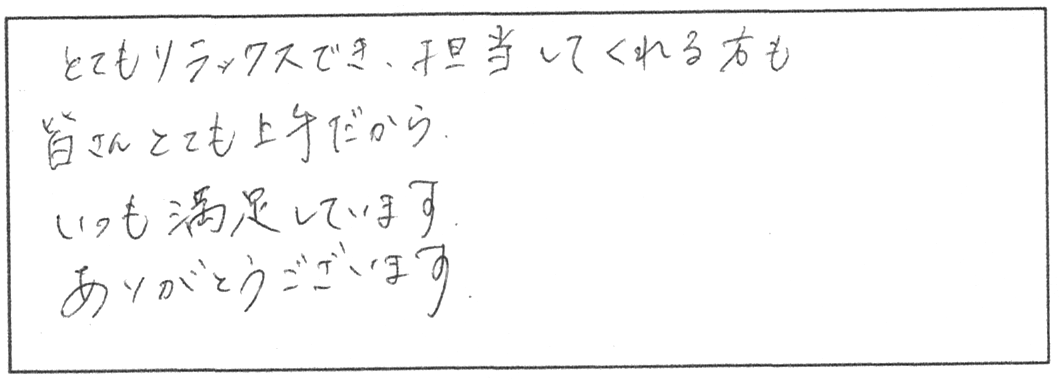 とてもリラックスでき、担当してくれる方も
皆さんとても上手だから.
いつも満足しています.
ありがとうございます.